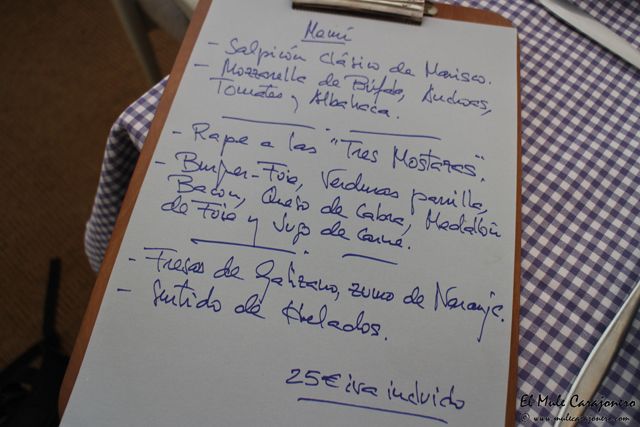 Menú
- Salpicón Clásico de Marisco.
- Mozzarella de Búfala, Anchoas,
Tomates y Albahaca.
- Rape a las "Tres Mostazas".
- Burger-Foie, Verduras parrilla,
Bacon, Queso de Cabra, Medallón
de Foie y Jugo de Carne.
- Fresas de Galizano, zumo de Naranja.
- Surtido de Helados.
25€ iva incluido
El Mule Carajonero
© www.mulecarajonero.com